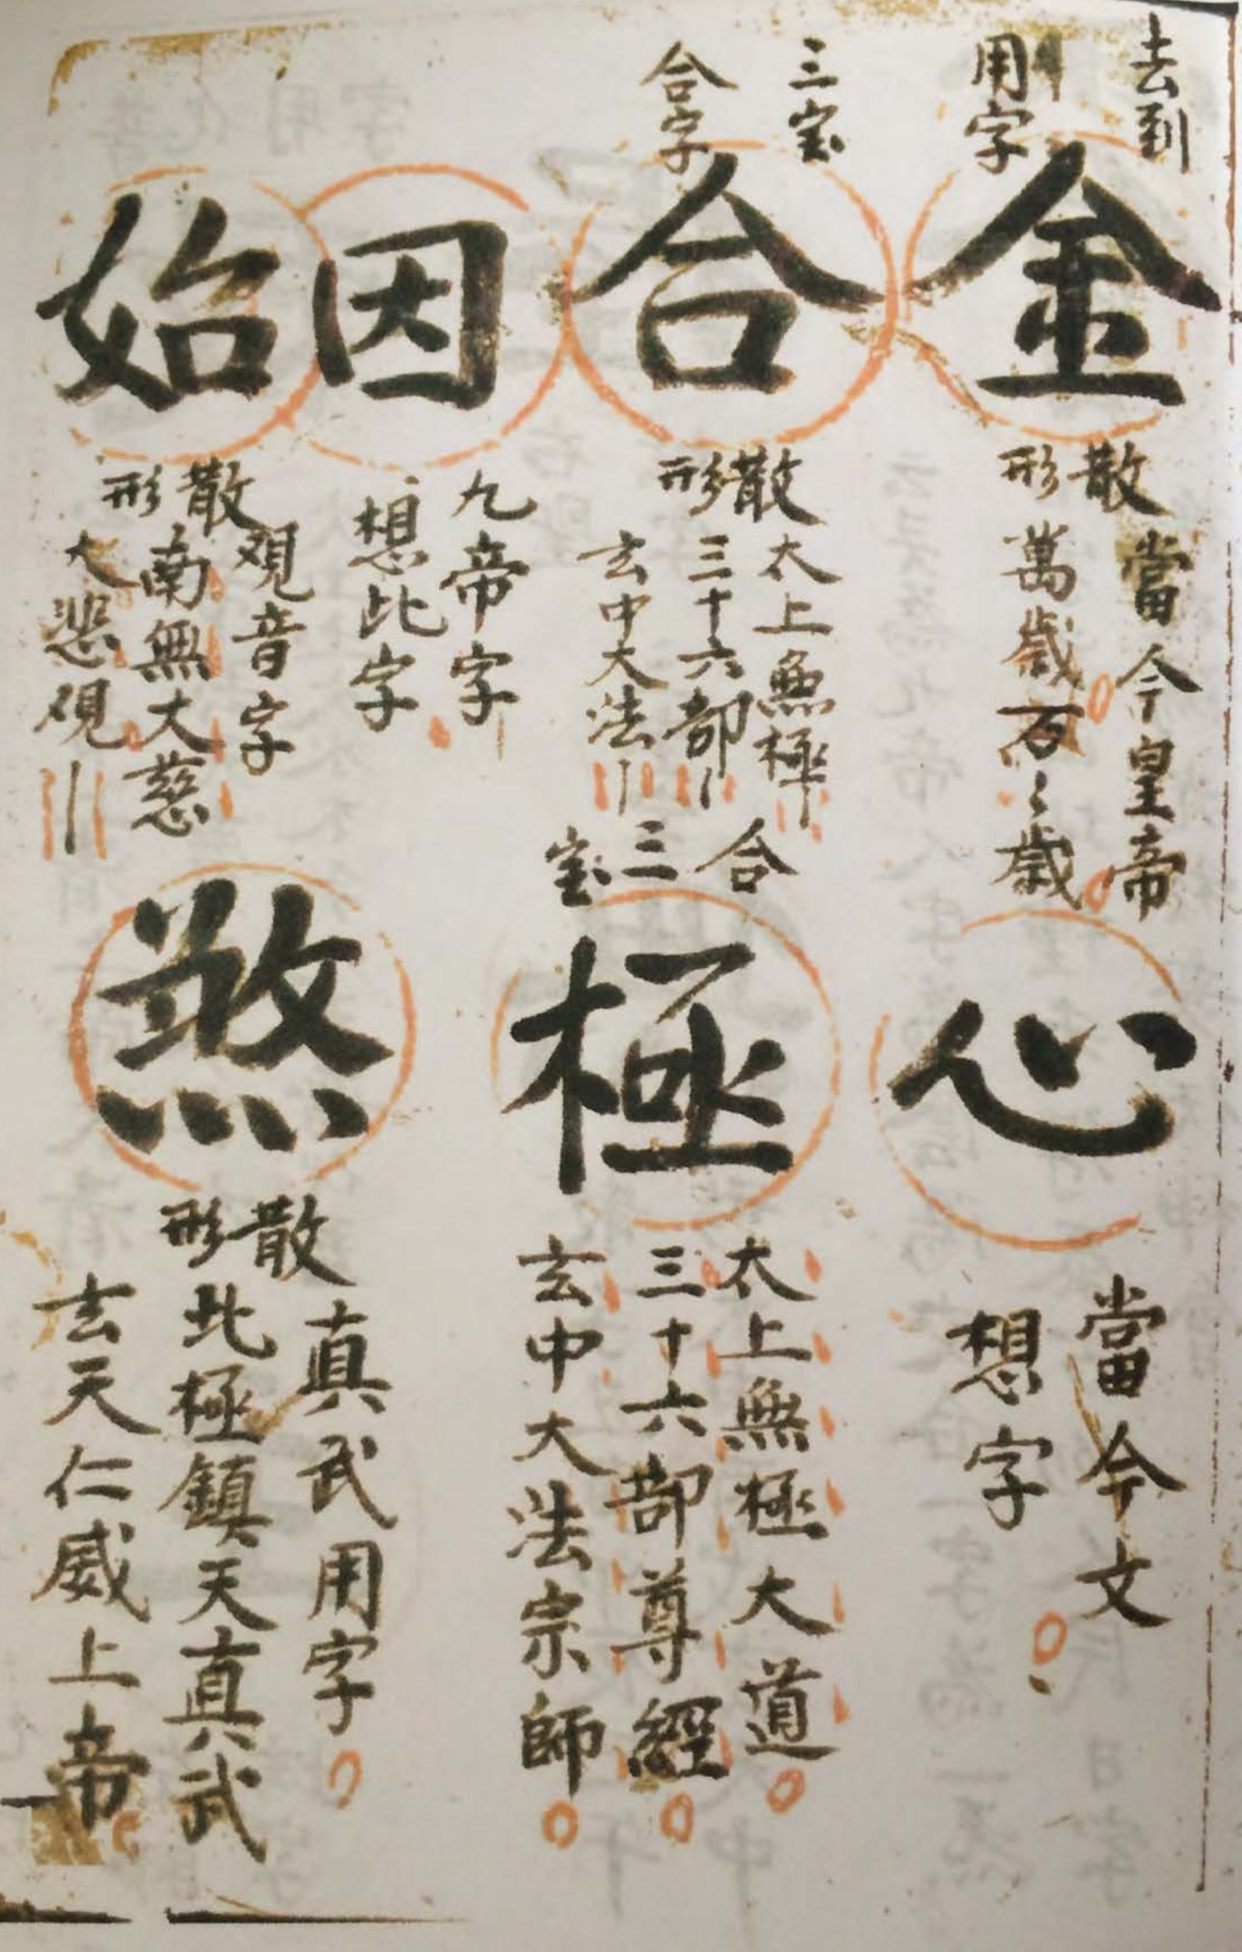 去到
用字
金
散形
當今皇帝
萬歲
百々歲
三宝
合字
合
散形
太上無極
三十六部
玄中大法
因
九帝字
想此字
始
散形
觀音字
南無大慈
大悲
心
當今文
想字
合三宝
極
太上無極大道
三十六部尊經
玄中大法宗師
煞
散形
真武用字
北極鎮天真武
玄天仁威上帝